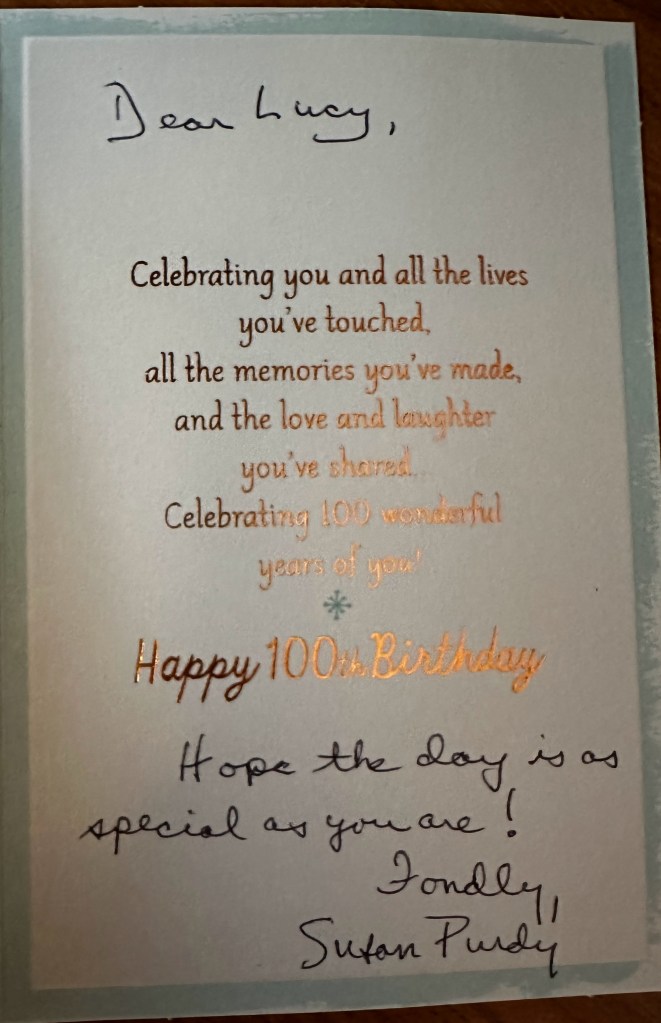 Dear Lucy,
Celebrating you and all the lives
you've touched,
all the memories you've made,
and the love and laughter
you've shared.
Celebrating 100 wonderful
years of you!
Happy 100th Birthday
Hope the day is as
special as you are!
Fondly,
Susan Purdy